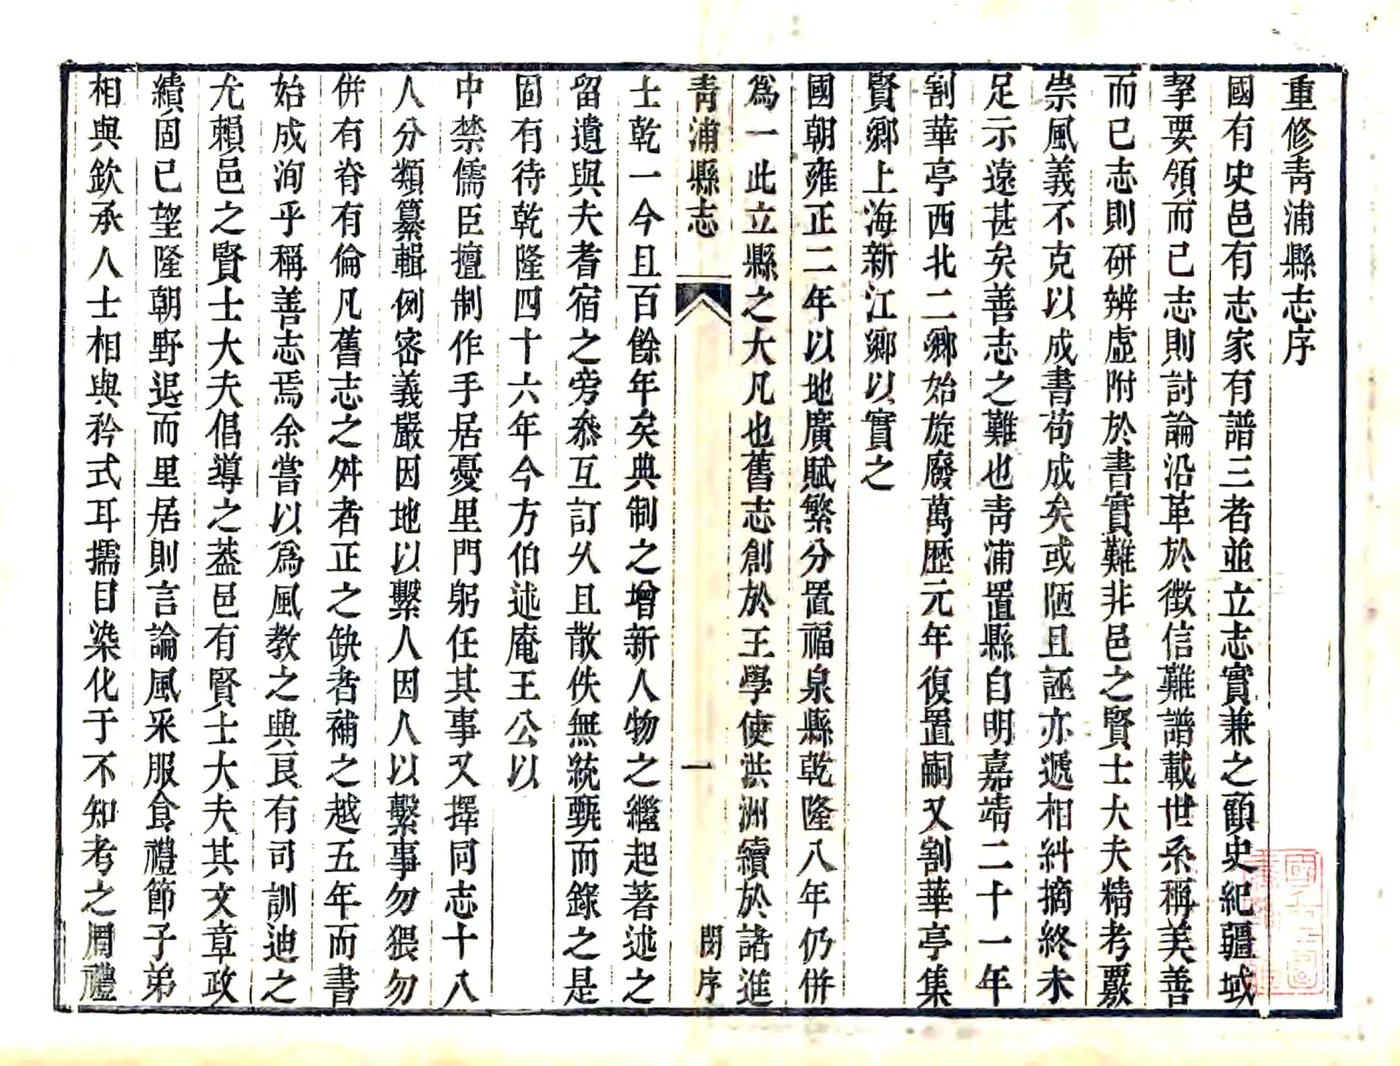 重修靑浦縣志序
國有史邑有志家有譜三者並立志實兼之顧史紀疆域
挈要領而已志則討論沿革於徵信難譜載世系稱美善
而已志則硏辨虛附於書實難非邑之賢士大夫精考覈
崇風義不克以成書苟成矣或陋且誣亦遞相糾摘終未
足示遠甚矣善志之難也靑浦置縣自明嘉靖二十一年
割華亭西北二鄉始旋廢萬歷元年復置嗣又割華亭集
賢鄉上海新江鄉以實之
國朝雍正二年以地廣賦繁分置福泉縣乾隆八年仍併
爲一此立縣之大凡也舊志創於王學使洪洲續於諸進
靑浦縣志
一
閔序
士乾一今且百餘年矣典制之增新人物之繼起著述之
留遺與夫耆宿之旁叅互訂久且散佚無統甄而錄之是
固有待乾隆四十六年今方伯述庵王公以
中禁儒臣擅制作手居憂里門躬任其事又擇同志十八
人分類纂輯例密義嚴因地以繫人因人以繫事勿猥勿
併有脊有倫凡舊志之舛者正之缺者補之越五年而書
始成洵乎稱善志焉余嘗以爲風敎之興良有司訓迪之
尤賴邑之賢士大夫倡導之葢邑有賢士大夫其文章政
績固已望隆朝野退而里居則言論風采服食禮節子弟
相與欽承人士相與矜式耳擩目染化于不知考之周禮